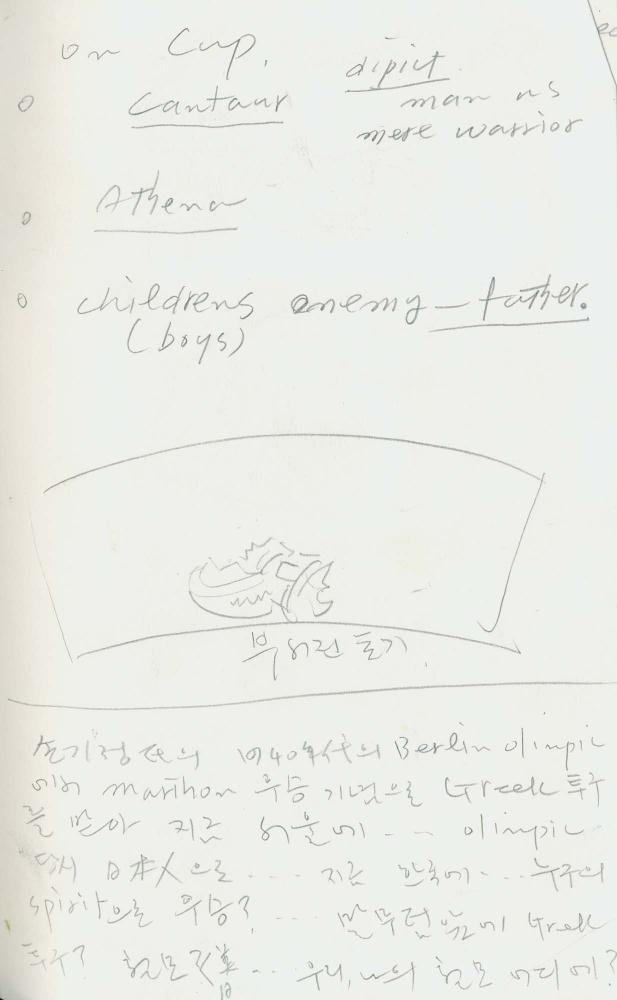 on Cup.
Cantaur
dipict
man as
mere warrior
Athena
childrens enemy — father.
(boys)
부서진 토기.
손기정 氏의 1940年代의 Berlin olimpic
에서 marthon 우승 기념으로 Greek 투구
를 받아 지금 서울에 -- olimpic
당시 日本人으로 .... 지금 한국에 ... 누구의
spirit으로 우승? ....  말무덤 앞에 Greek
투구? 혈모 ... 우리, 나의 혈모 어디에?